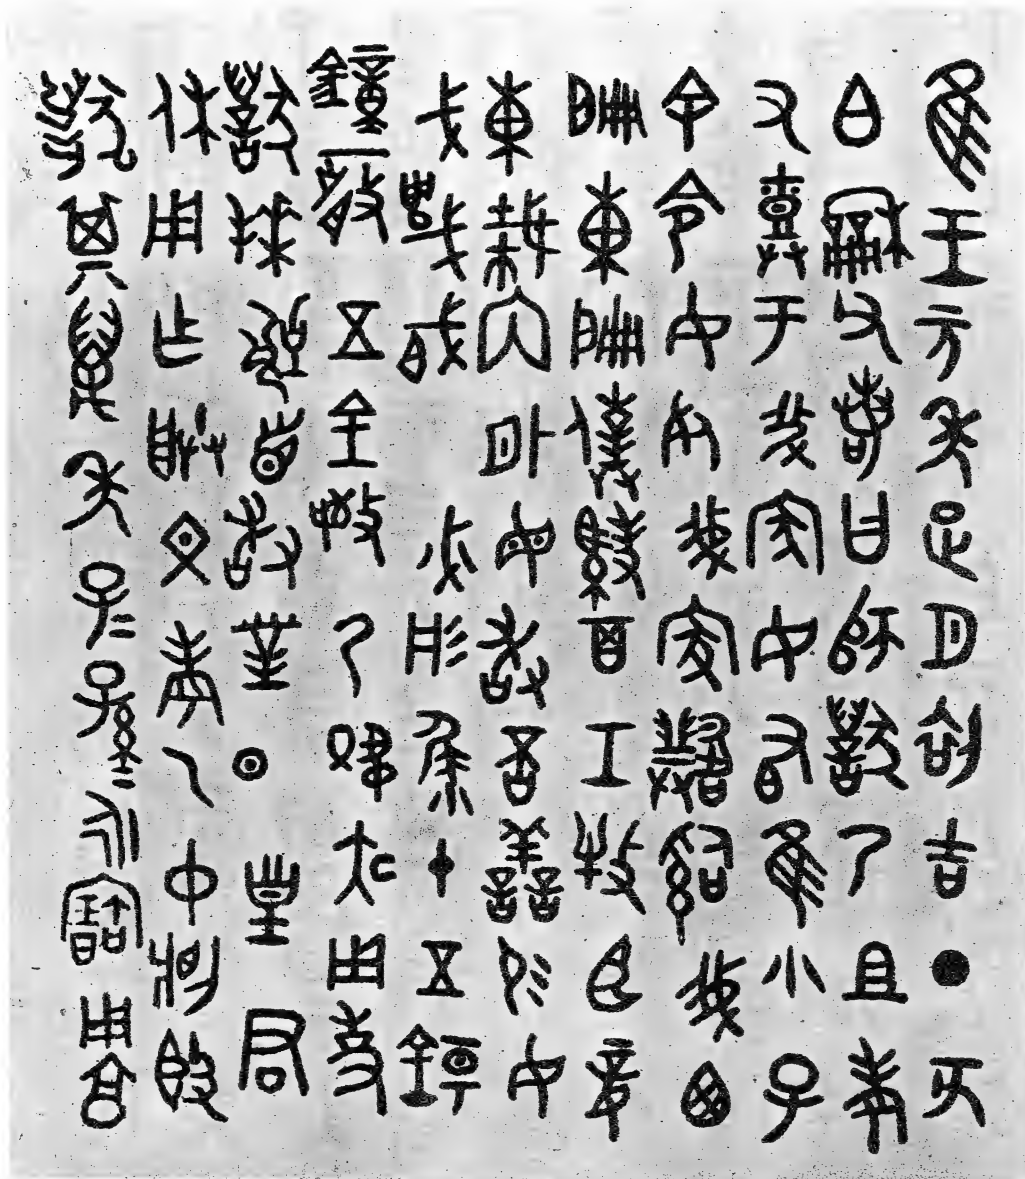 隹王元年正月初吉丁亥
白龢父若曰師𠭰乃且考
又于我家女右隹小子
余令女死我家𤔲我西
扁東扁僕馭百工牧臣妾
東裁内外毋敢否善易女
戈㦸必彤十五鍚
鐘一磬五金敬乃夙夜用事
𠭰拜稽首敢對揚皇君
休用乍朕文考乙中將簋
𠭰其萬年子子孫孫永寶用享